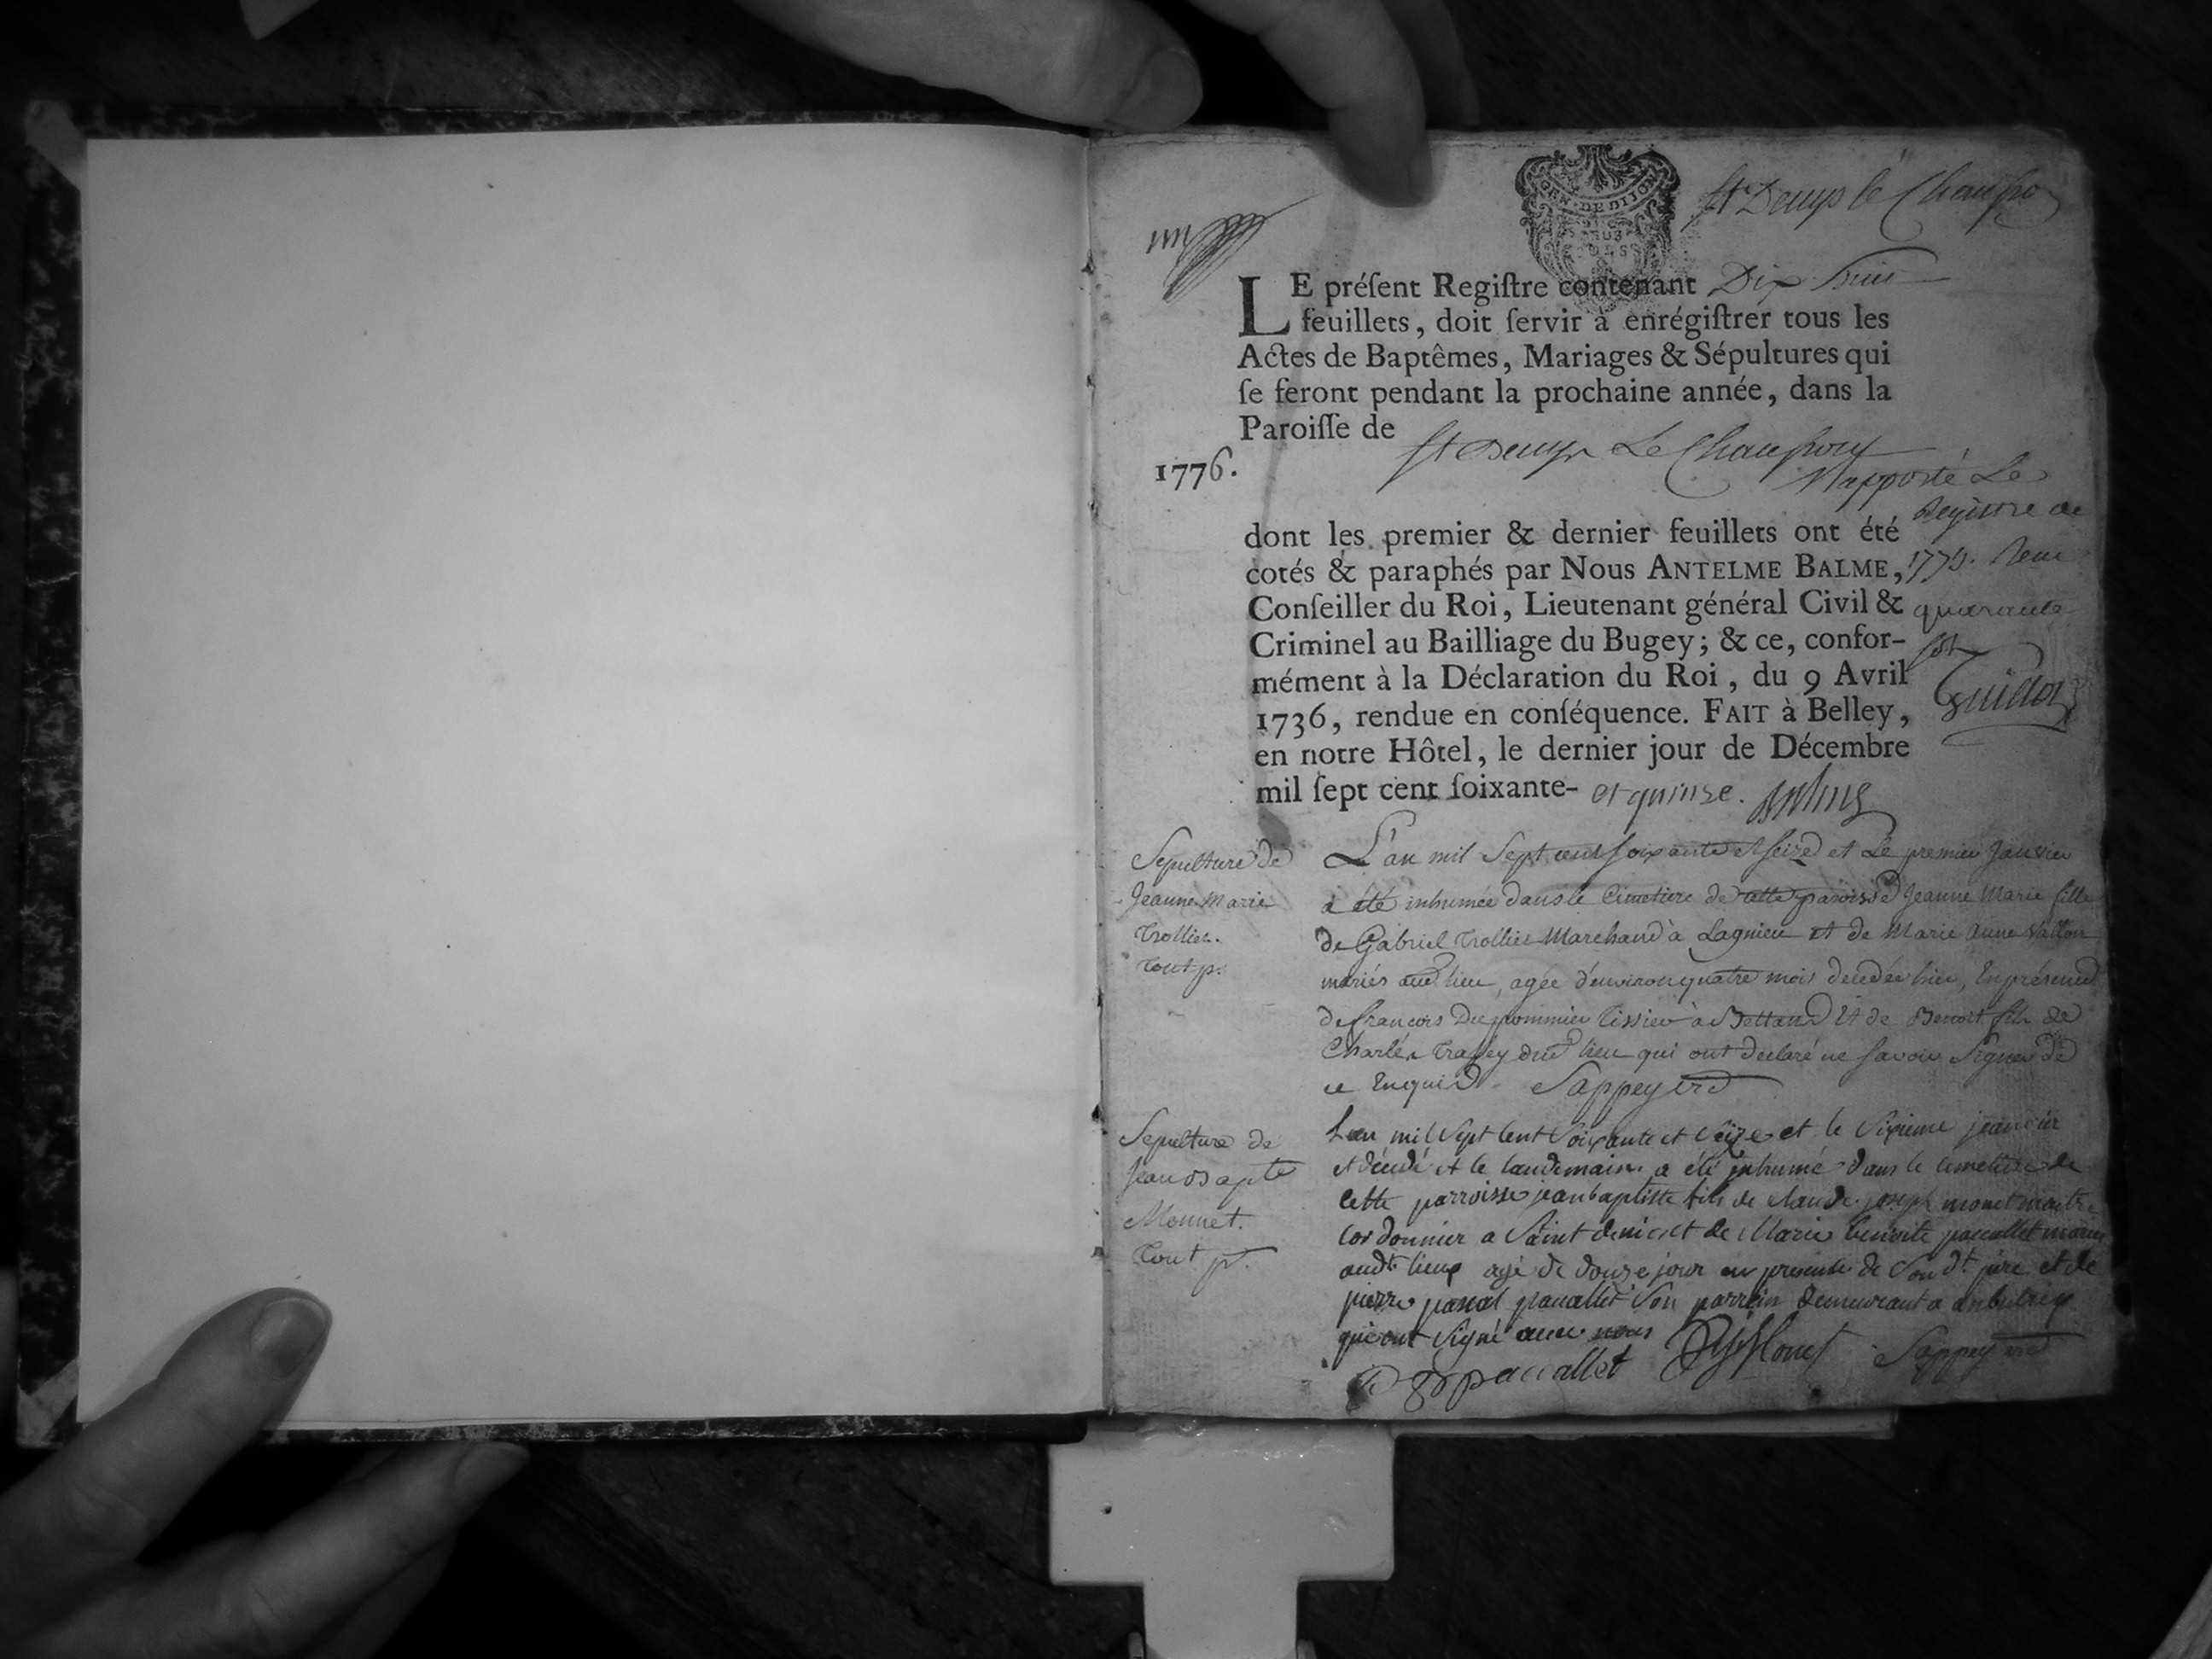 GEN. DE DIJON
St Denys le Chausson
LE préſent Regiſtre contenant Dix huit
feuillets, doit ſervir à enrégiſtrer tous les
Actes de Baptêmes, Mariages & Sépultures qui
ſe feront pendant la prochaine année, dans la
Paroiſſe de
St Denys Le Chausson
1776.
Rapporté Le
Registre de
1775. Reçu
quarante
sols
Guillot
dont les premier & dernier feuillets ont été
cotés & paraphés par Nous ANTELME BALME,
Conſeiller du Roi, Lieutenant général Civil &
Criminel au Bailliage du Bugey; & ce, confor-
mément à la Déclaration du Roi, du 9 Avril
1736, rendue en conſéquence. FAIT à Belley,
en notre Hôtel, le dernier jour de Décembre
mil ſept cent ſoixante- et quinze.
Sepulture de
Jeanne Marie
Trollier.
Tout p.
L'an mil Sept cent Soixante et Seize et Le premier Janvier
a été inhumée dans le Cimetiere de cette paroisse Jeanne Marie fille
de Gabriel Trollier Marchand à Lagnieu et de Marie Anne Vallon
mariés aud lieu, agée d'environ quatre mois decedée hier, En présence
de francois Dupommier Tissier à Bettand Et de Benoit fils de
Charles Trafey dud lieu qui ont declaré ne savoir Signer de
ce Enquis Sappey
Sepulture de
Jean Bapte
Monnet.
Tout p.
Lan mil Sept Cent Soixante et Seize et le Sixieme jeanvier
et décédé et le landemain a été inhumé dans le cimetiere de
Cette parroisse jean baptiste fils de claude joseph monet maitre
Cordonnier a Saint denis et de Marie benoite pacallet mariés
audt lieux agé de douze jour en presence de Son dt pere et de
pierre pascal pacallet Son parrein demeurant a ambutrix
qui ont Signé avec nous
paccallet Monet Sappey